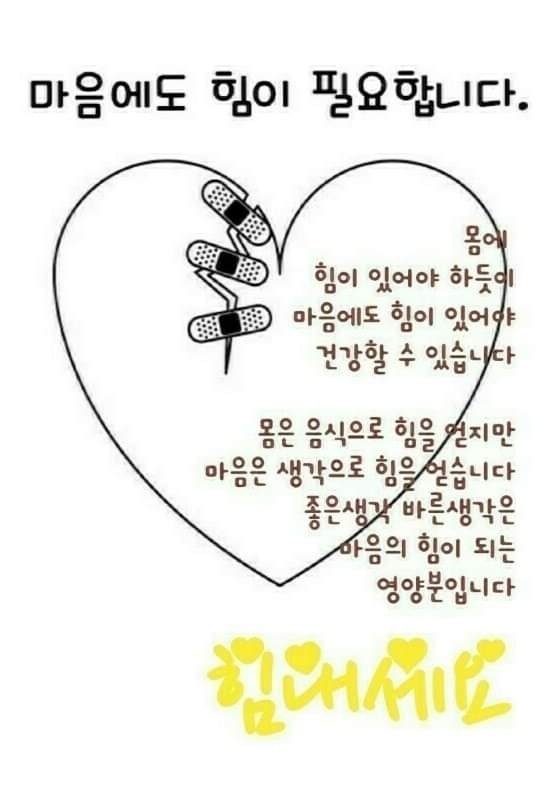 마음에도 힘이 필요합니다.
몸에
힘이 있어야 하듯이
마음에도 힘이 있어야
건강할 수 있습니다
몸은 음식으로 힘을 얻지만
마음은 생각으로 힘을 얻습니다
좋은생각 바른생각은
마음의 힘이 되는
영양분입니다
힘내세요